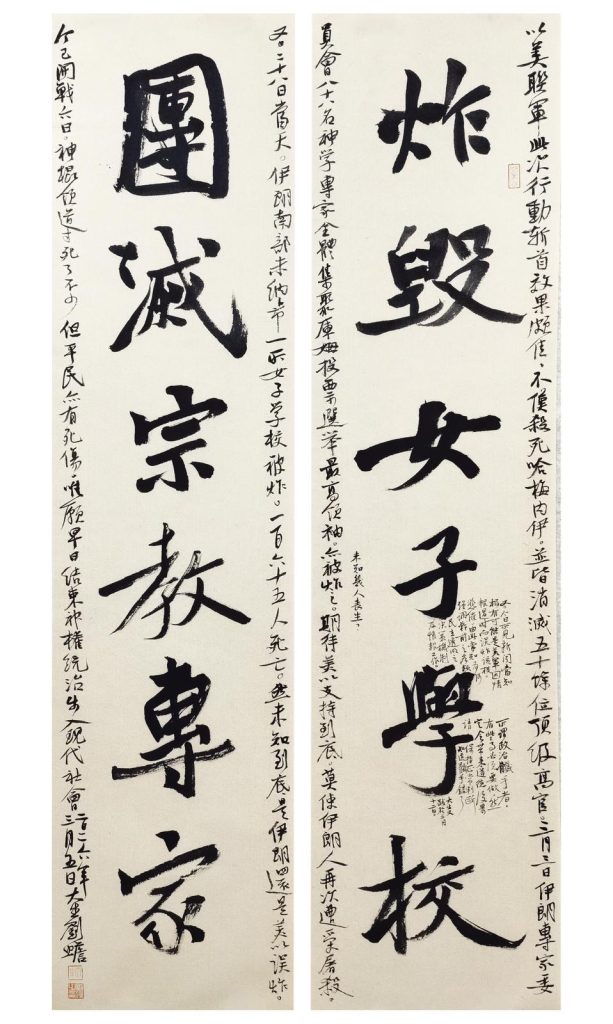 以美聯軍此次行動斬首效果頗佳，不僅殺死哈梅內伊。並皆消滅五十餘位頂級高官。三月三日伊朗專家委
炸毀女子學校
員會八十八名神学專家全體集聚庫姆投票選舉最高領袖。亦被炸之。期待美以支持到底，莫使伊朗人再次遭受屠殺。
未知幾人喪生，
又：二十八日當天。伊朗南部米納布市一所女子学校被炸。一百六十五人死亡。然未知到底是伊朗還是美以誤炸。
團滅宗教專家
今已開戰六日。神棍領導死了不少，但平民亦有死傷，唯願早日結束神權統治步入現代社會
二〇二六年
三月五日大生劉蟾